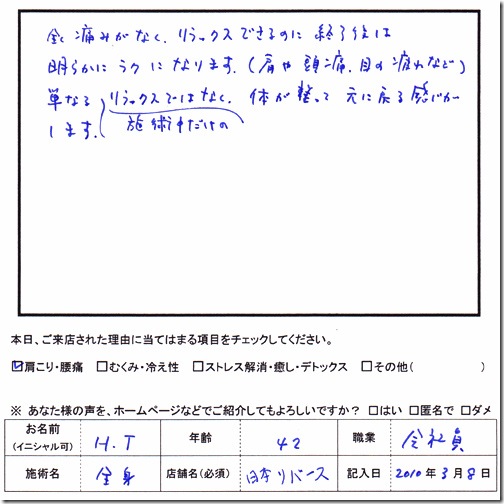 全く痛みがなく、リラックスできるのに終了後は
明らかにラクになります。(肩や頭痛、目の疲れなど)
単なるリラックスではなく、体が整って元に戻る感じが
します。施術中だけの
本日、ご来店された理由に当てはまる項目をチェックしてください。
☑肩こり・腰痛 □むくみ・冷え性 □ストレス解消・癒し・デトックス □その他( )
※ あなた様の声を、ホームページなどでご紹介してもよろしいですか? □はい □匿名で □ダメ
お名前(イニシャル可) H.T 年齢 42 職業 会社員
施術名 全身 店舗名(必須) 日本リバース 記入日 2010年3月8日